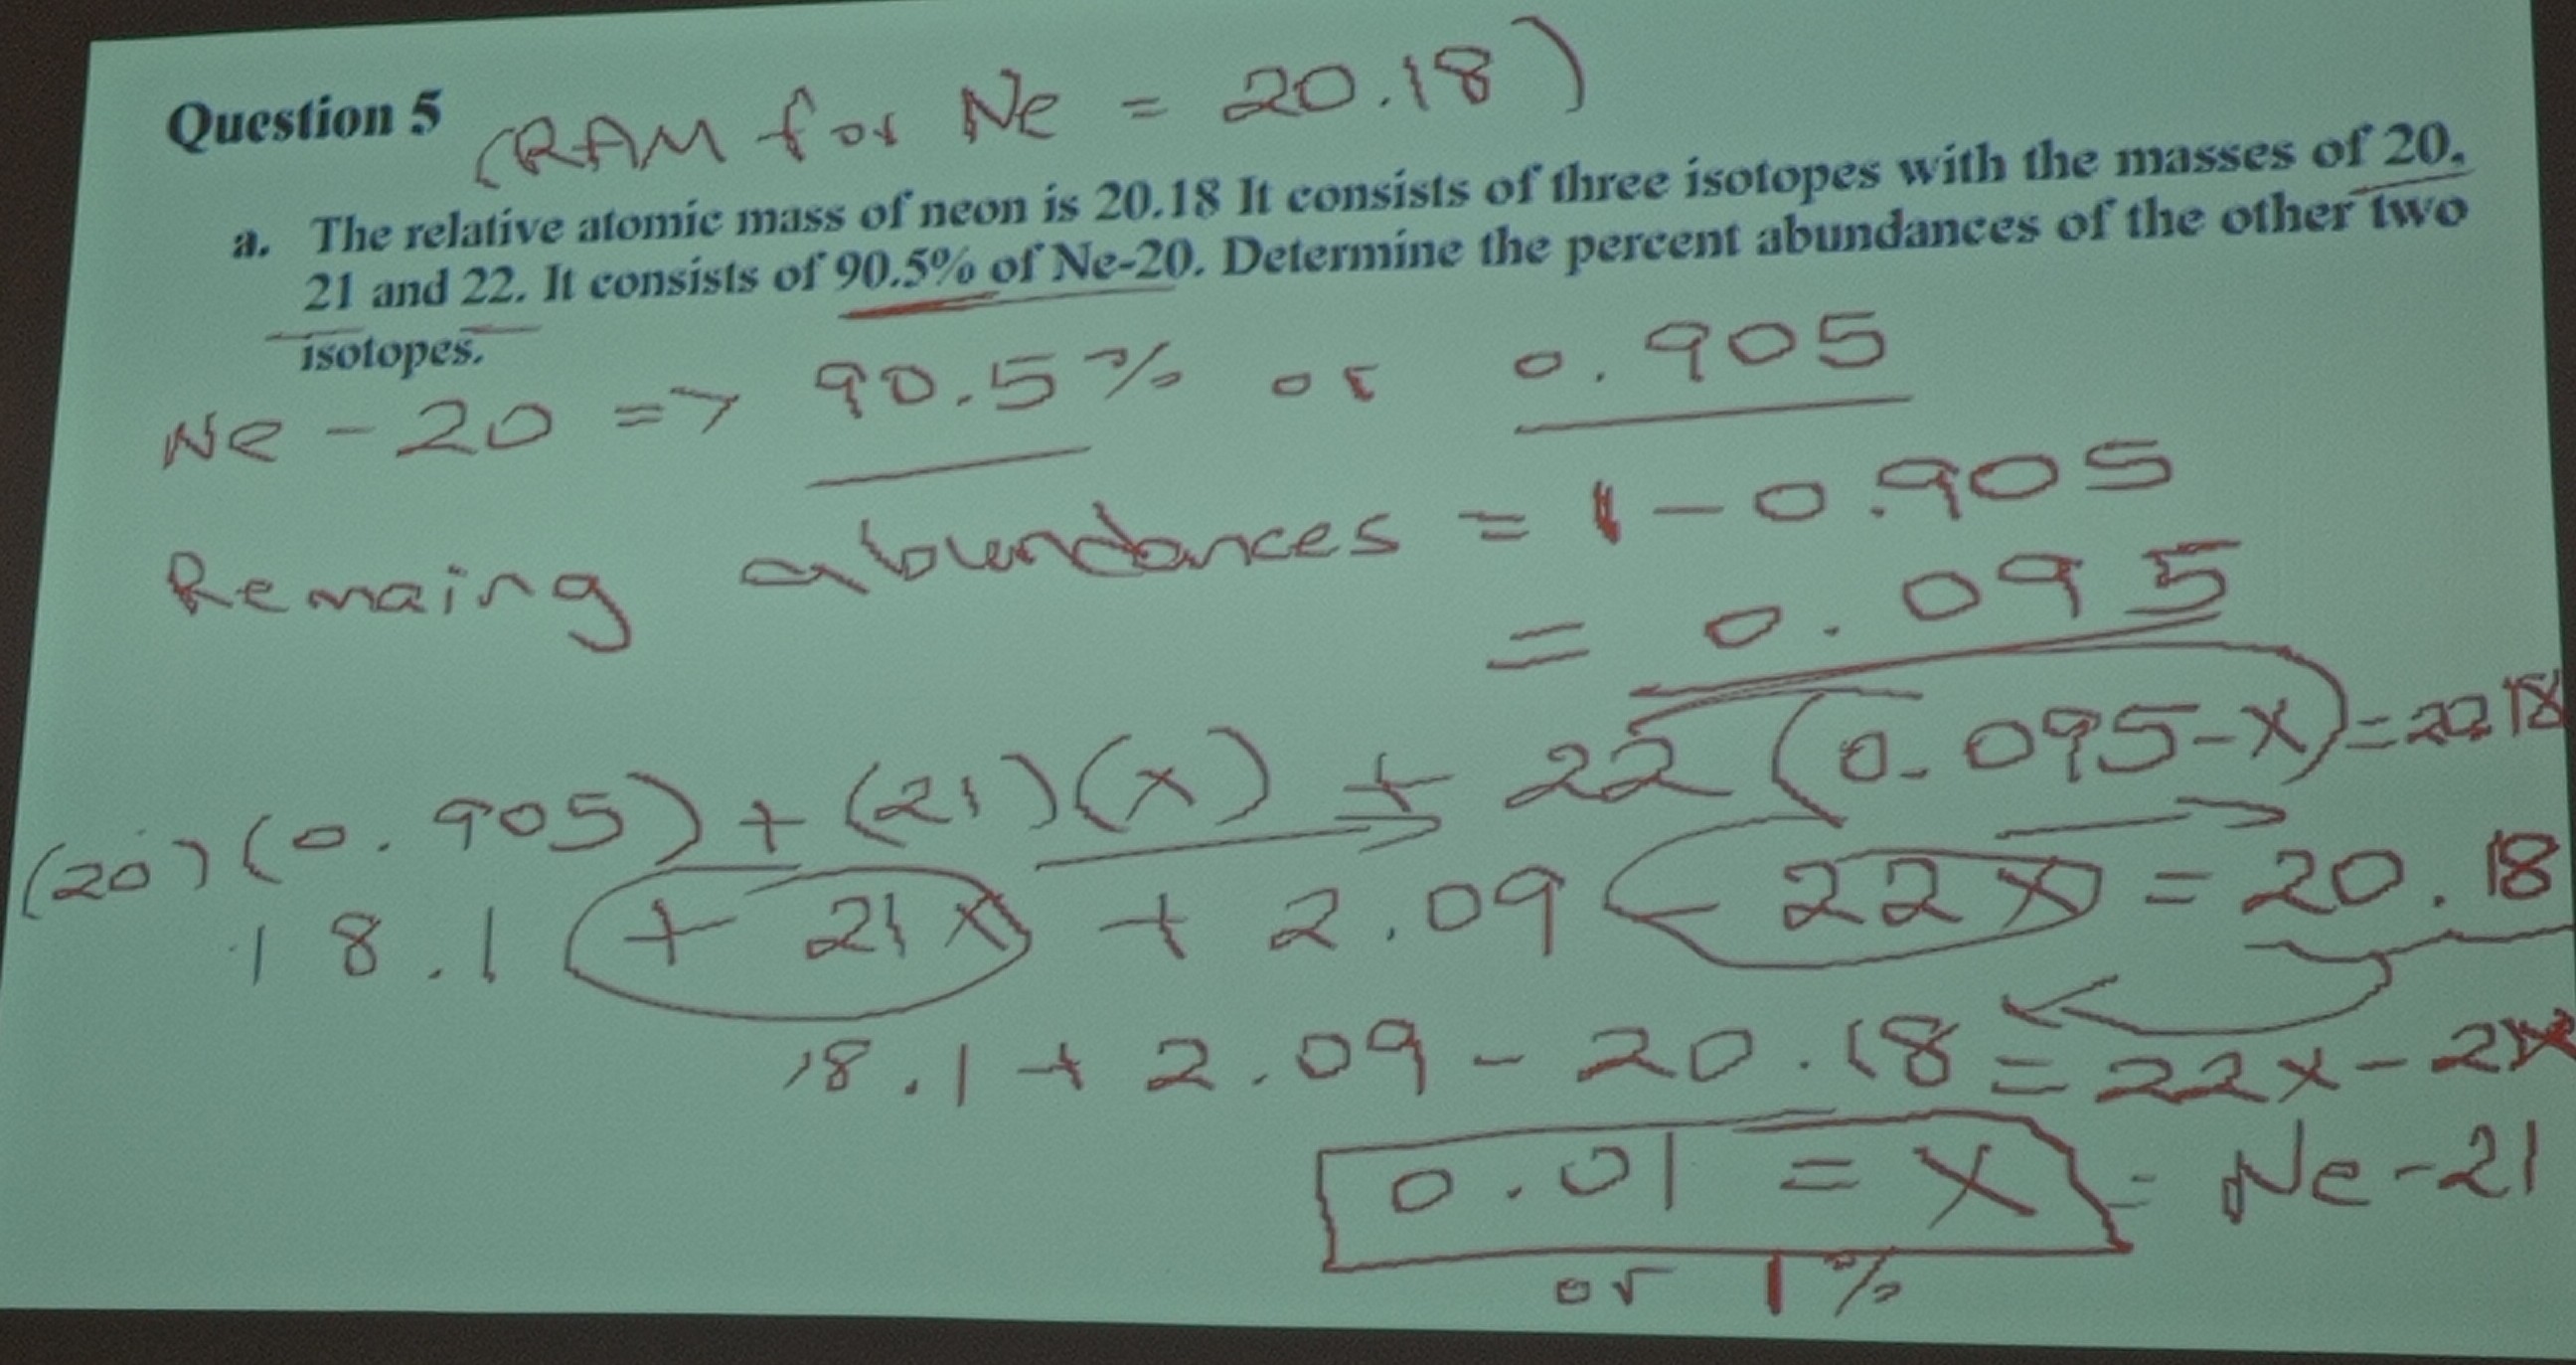 Question 5 (RAM for Ne = 20.18)
a. The relative atomic mass of neon is 20.18 It consists of three isotopes with the masses of 20,
21 and 22. It consists of 90.5% of Ne-20. Determine the percent abundances of the other two
isotopes.
Ne - 20 => 90.5% or 0.905
Remaing abundances = 1 - 0.905
= 0.095
(20)(0.905) + (21)(x) + 22(0.095-x) =
18.1 + 21x + 2.09 - 22x = 20.18
18.1 + 2.09 - 20.18 = 22x - 21x
0.01 = x = Ne-21
or 1%